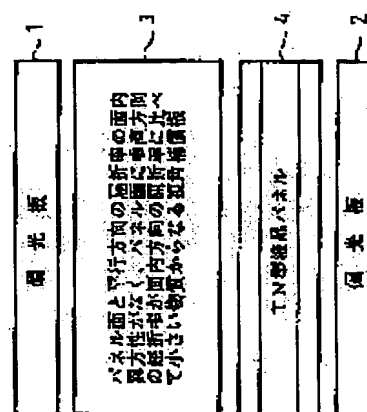 偏光板
1
パネル面と平行方向の屈折率の面内
異方性がなく、パネル面に垂直方向
の屈折率が面内方向の屈折率に比べ
て小さい物質からなる視角補償板
3
TN型液晶パネル
4
偏光板
2